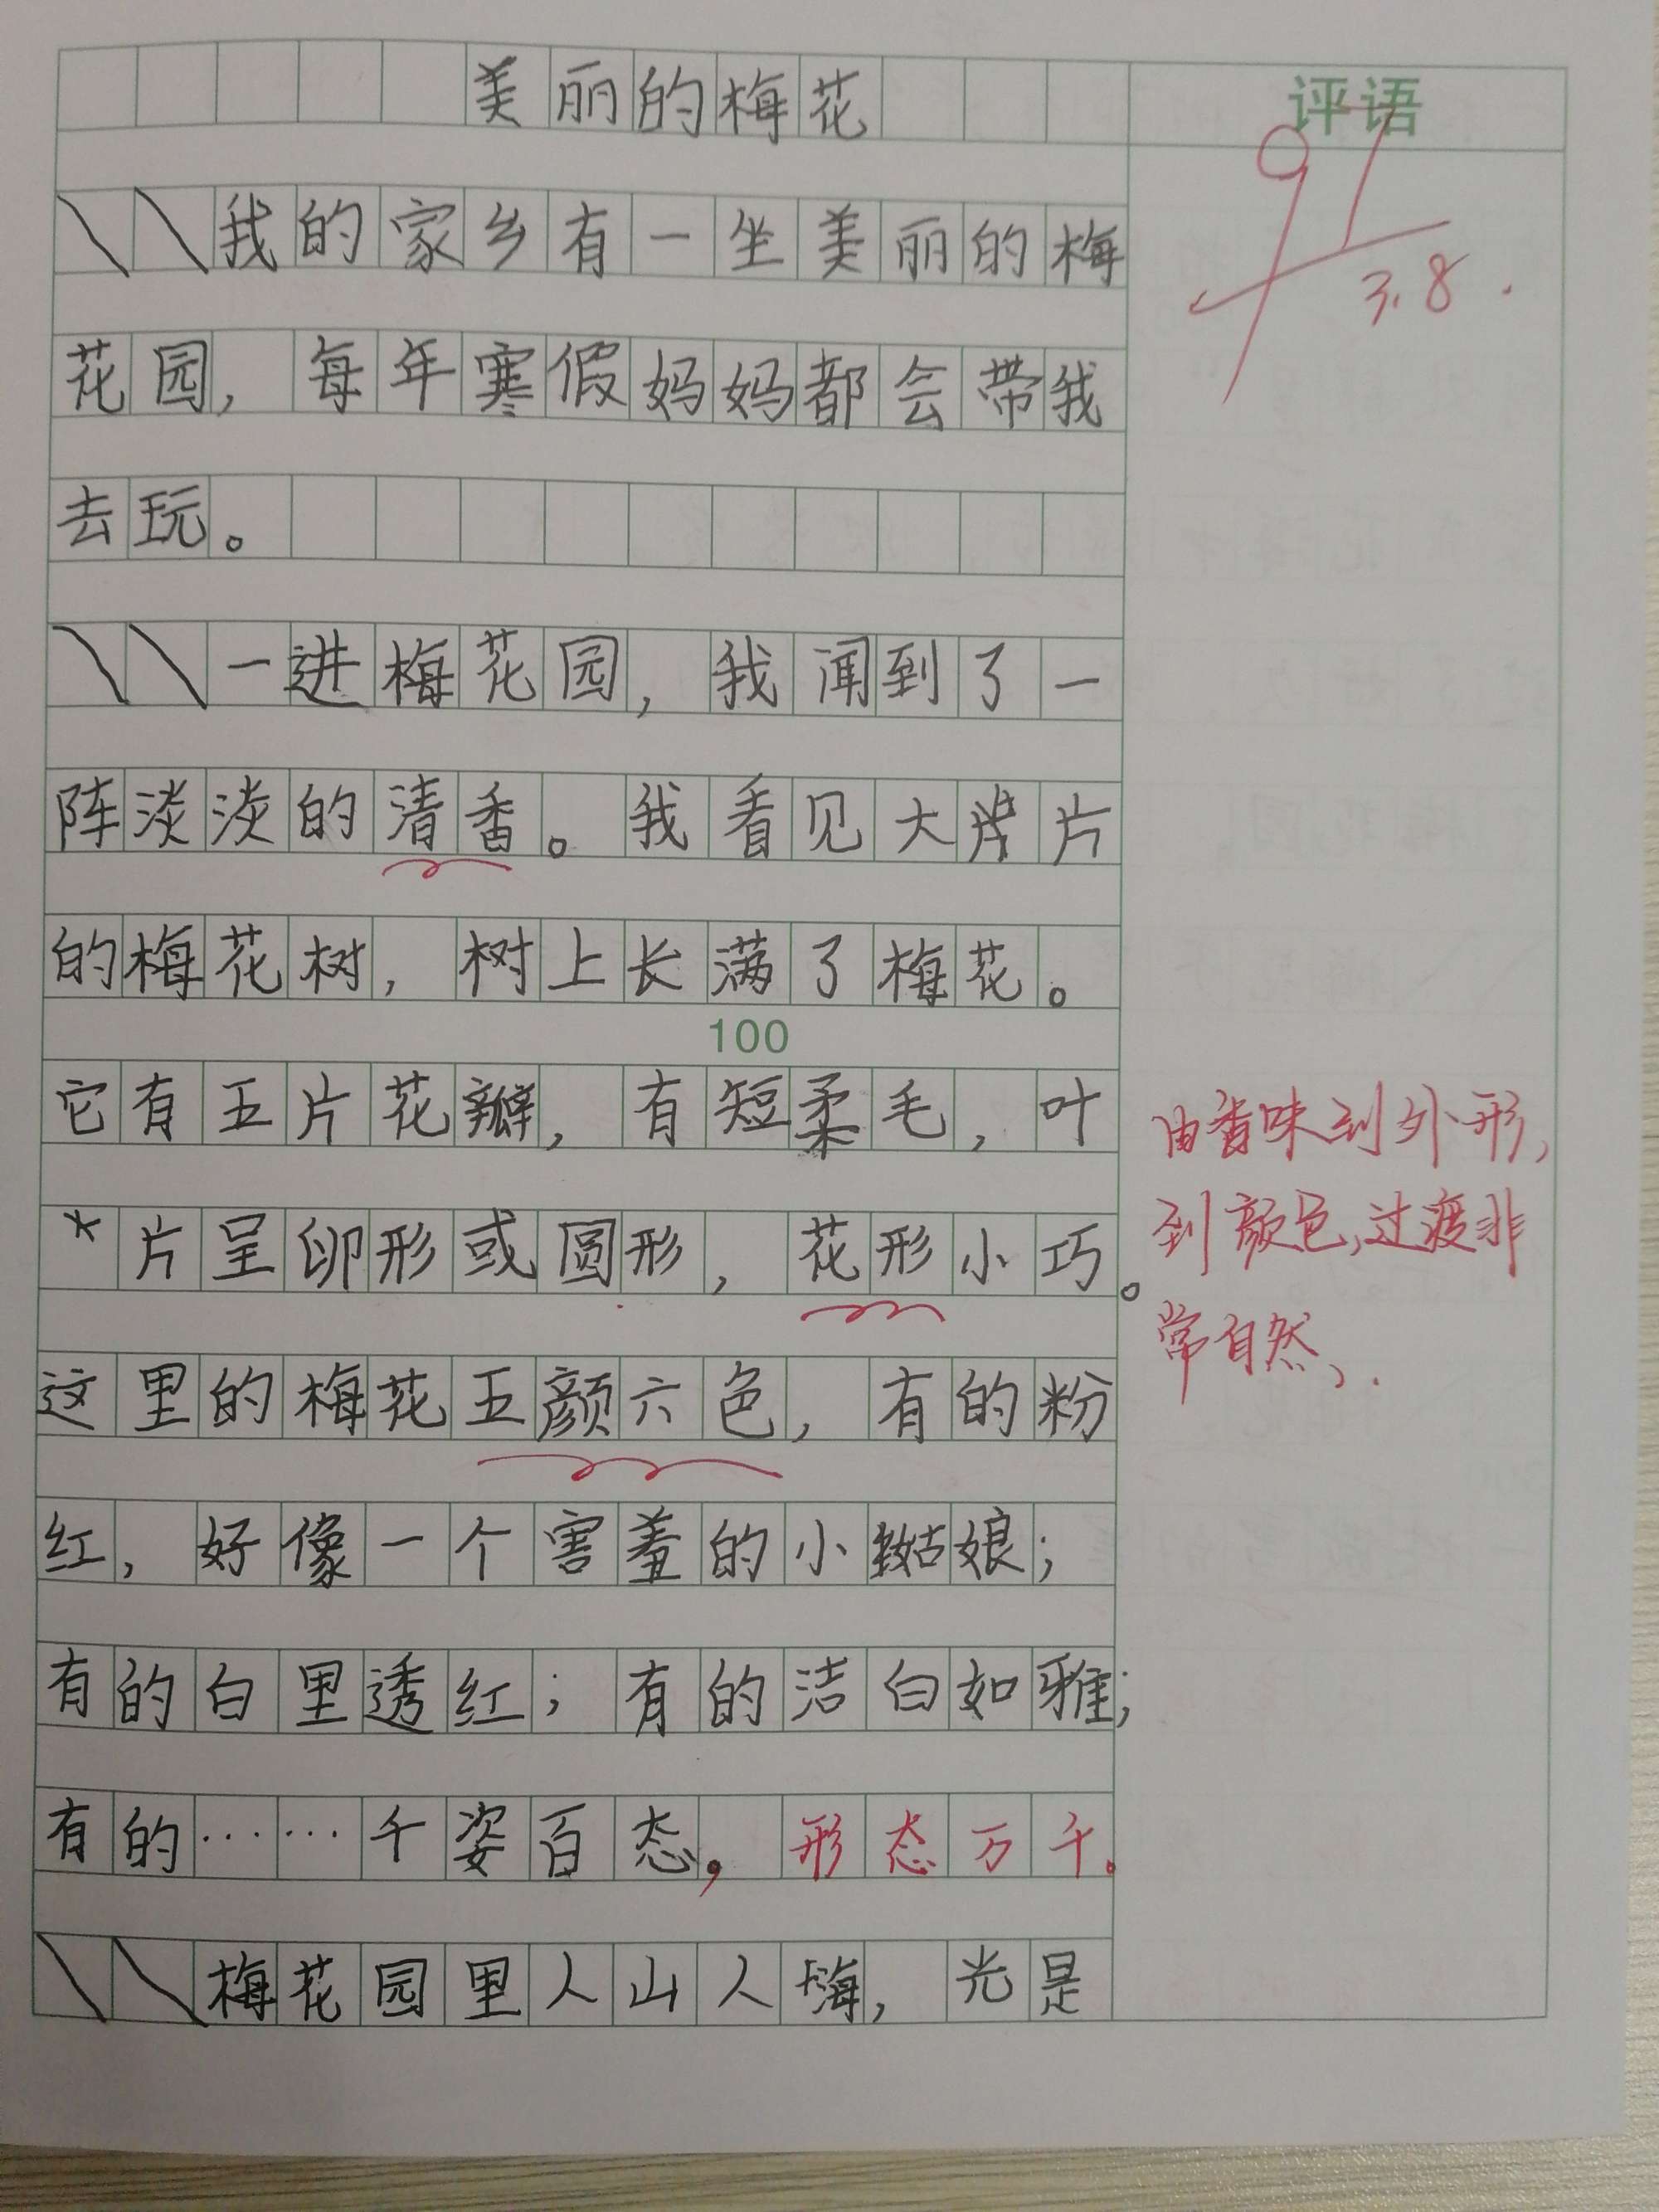 美丽的梅花
评语
91
3.8.
我的家乡有一坐美丽的梅
花园，每年寒假妈妈都会带我
去玩。
一进梅花园，我闻到了一
阵淡淡的清香。我看见大片片
的梅花树，树上长满了梅花。
100
它有五片花瓣，有短柔毛，叶
片呈卵形或圆形，花形小巧。
这里的梅花五颜六色，有的粉
红，好像一个害羞的小姑娘；
有的白里透红；有的洁白如雅；
有的……千姿百态，形态万千。
梅花园里人山人海，光是
由香味到外形，
到颜色，过渡非
常自然、.